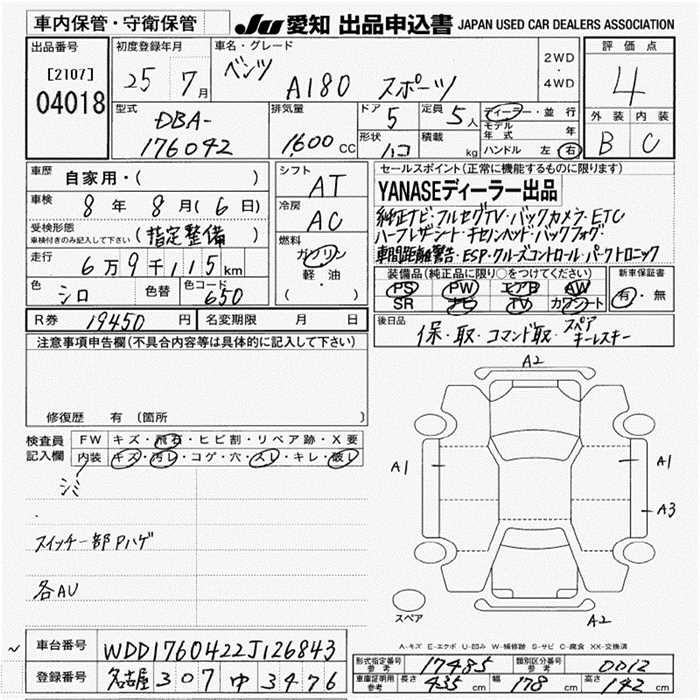 車内保管・守衛保管 JU 愛知 出品申込書 JAPAN USED CAR DEALERS ASSOCIATION
出品番号 初度登録年月 車名・グレード 2WD・4WD 評価点
[2107] 25 7月 ベンツ A180 スポーツ 4
04018 型式 排気量 ドア 5 定員 5人 ディーラー・並行 外装 内装
DBA-176042 1,600CC 形状 ハコ 積載 kg モデル年式 年 B C
ハンドル 左 右
車歴 自家用・( ) シフト AT セールスポイント(正常に機能するものに限ります)
車検 8年 8月(6日) 冷房 AC YANASEディーラー出品
受検形態 (指定整備) 純正ナビ・フルセグTV・バックカメラ・ETC
車検付きのみ記入して下さい 燃料 ガソリン ハーフレザーシート・キセノンヘッド・バックフォグ・
走行 6万9千115km 軽・油 車間距離警告・ESP・クルーズコントロール・パークトロニック
色 シロ 色替 色コード 650 ( ) 装備品(純正品に限り○をつけてください) 新車保証書
PS PW エアB AW 有・無
SR ナビ TV カワシート
R券 19450円 名変期限 月 日 後日品 保・取・コマンド取・スペアキーレスキー
注意事項申告欄(不具合内容等は具体的に記入して下さい)
A2
修復歴 有 (箇所
検査員記入欄 FW キズ・飛石・ヒビ割・リペア跡・X要
内装 キズ・汚レ・コゲ・穴・スレ・キレ・破レ
A1 A1
シミ
A3
スイッチ一部Pハゲ
各AU
スペア A2
A-キズ E-エクボ U-凹み W-補修跡 S-サビ C-腐食 XX-交換済
~ 車台番号 WDD1760422J126843
形式指定番号 参考 17485 類別区分番号 参考 0012
登録番号 名古屋 307 ゆ 3476 車庫証明用 参考 長さ 435cm 幅 178cm 高さ 142cm